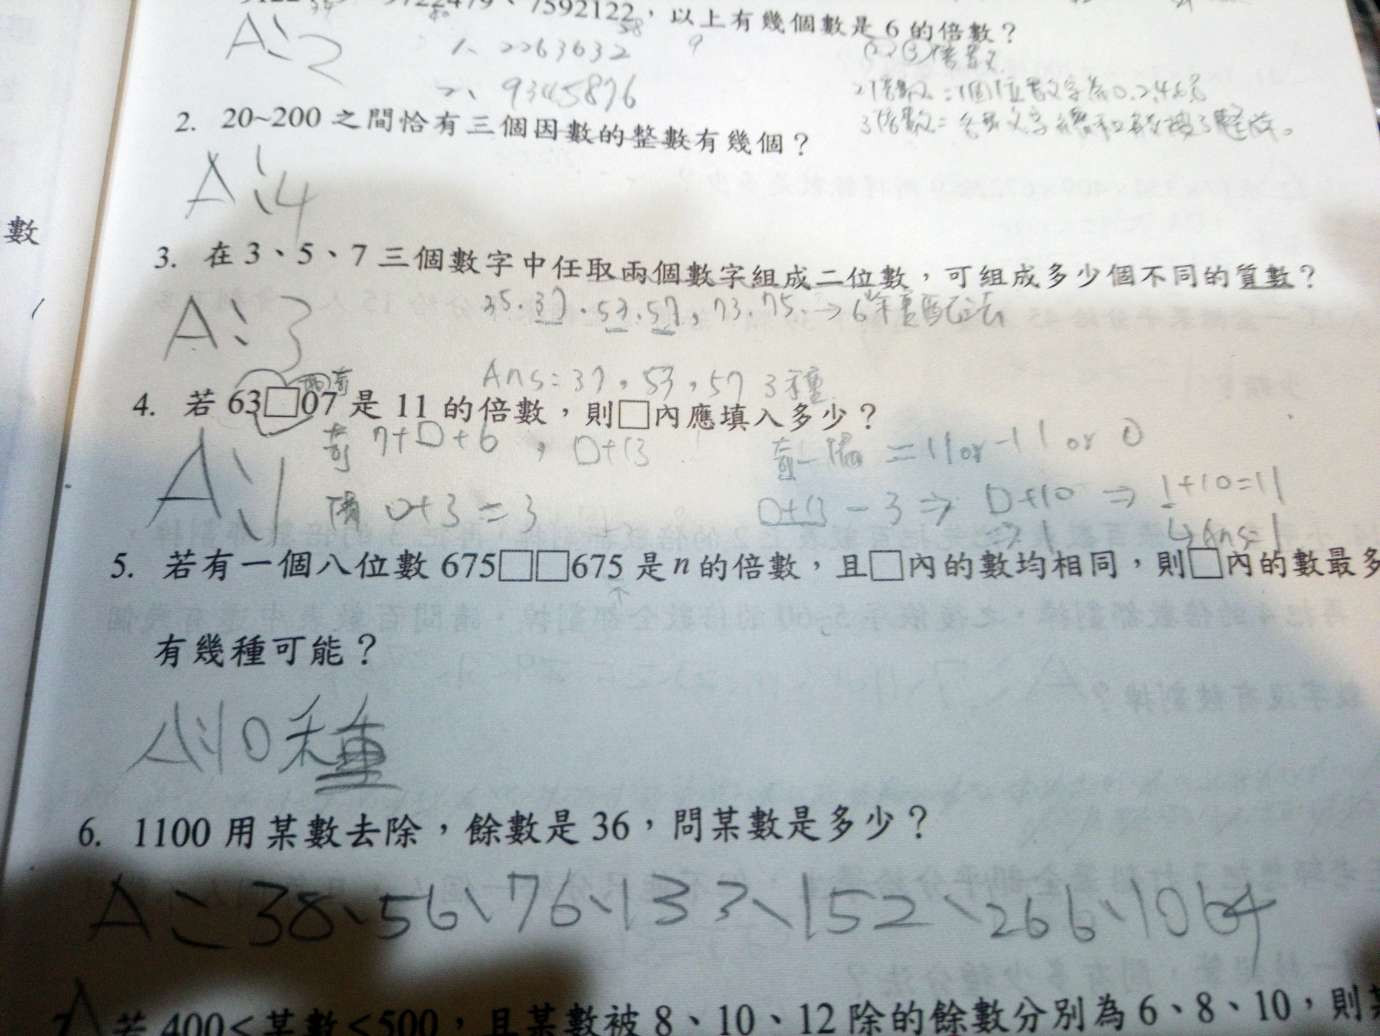 7592122,以上有幾個數是 6 的倍數?
A:2
1、2263632
2、9345876
2倍數:個位數字為0,2,4,6,8
3倍數=各數字總和能被3整除。
2. 20~200 之間恰有三個因數的整數有幾個?
A:4
數
3. 在 3、5、7 三個數字中任取兩個數字組成二位數,可組成多少個不同的質數?
A:3
35.37.53.57,73.75.→6種配法
Ans=37,53,57 3種
4. 若 63□07 是 11 的倍數,則□內應填入多少?
A:1
奇 7+□+6,□+13
奇-偶=11or-11 or 0
偶 0+3=3
□+13-3⇒□+10⇒1+10=11
⇒1
↳Ans=1
5. 若有一個八位數 675□□675 是 n 的倍數,且□內的數均相同,則□內的數最多
有幾種可能?
A:10種
6. 1100 用某數去除,餘數是 36,問某數是多少?
A:38、56、76、133、152、266、1064
7. 若 400<某數<500,且某數被 8、10、12 除的餘數分別為 6、8、10,則某